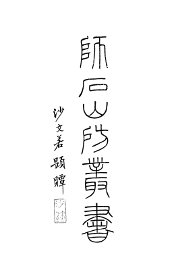 師石山房叢書
沙文若題耑